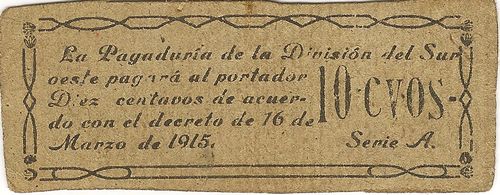 La Pagaduría de la División del Sur
oeste pagará al portador
Diez centavos de acuer-
do con el decreto de 16 de
Marzo de 1915.
10-CVOS-
Serie A.